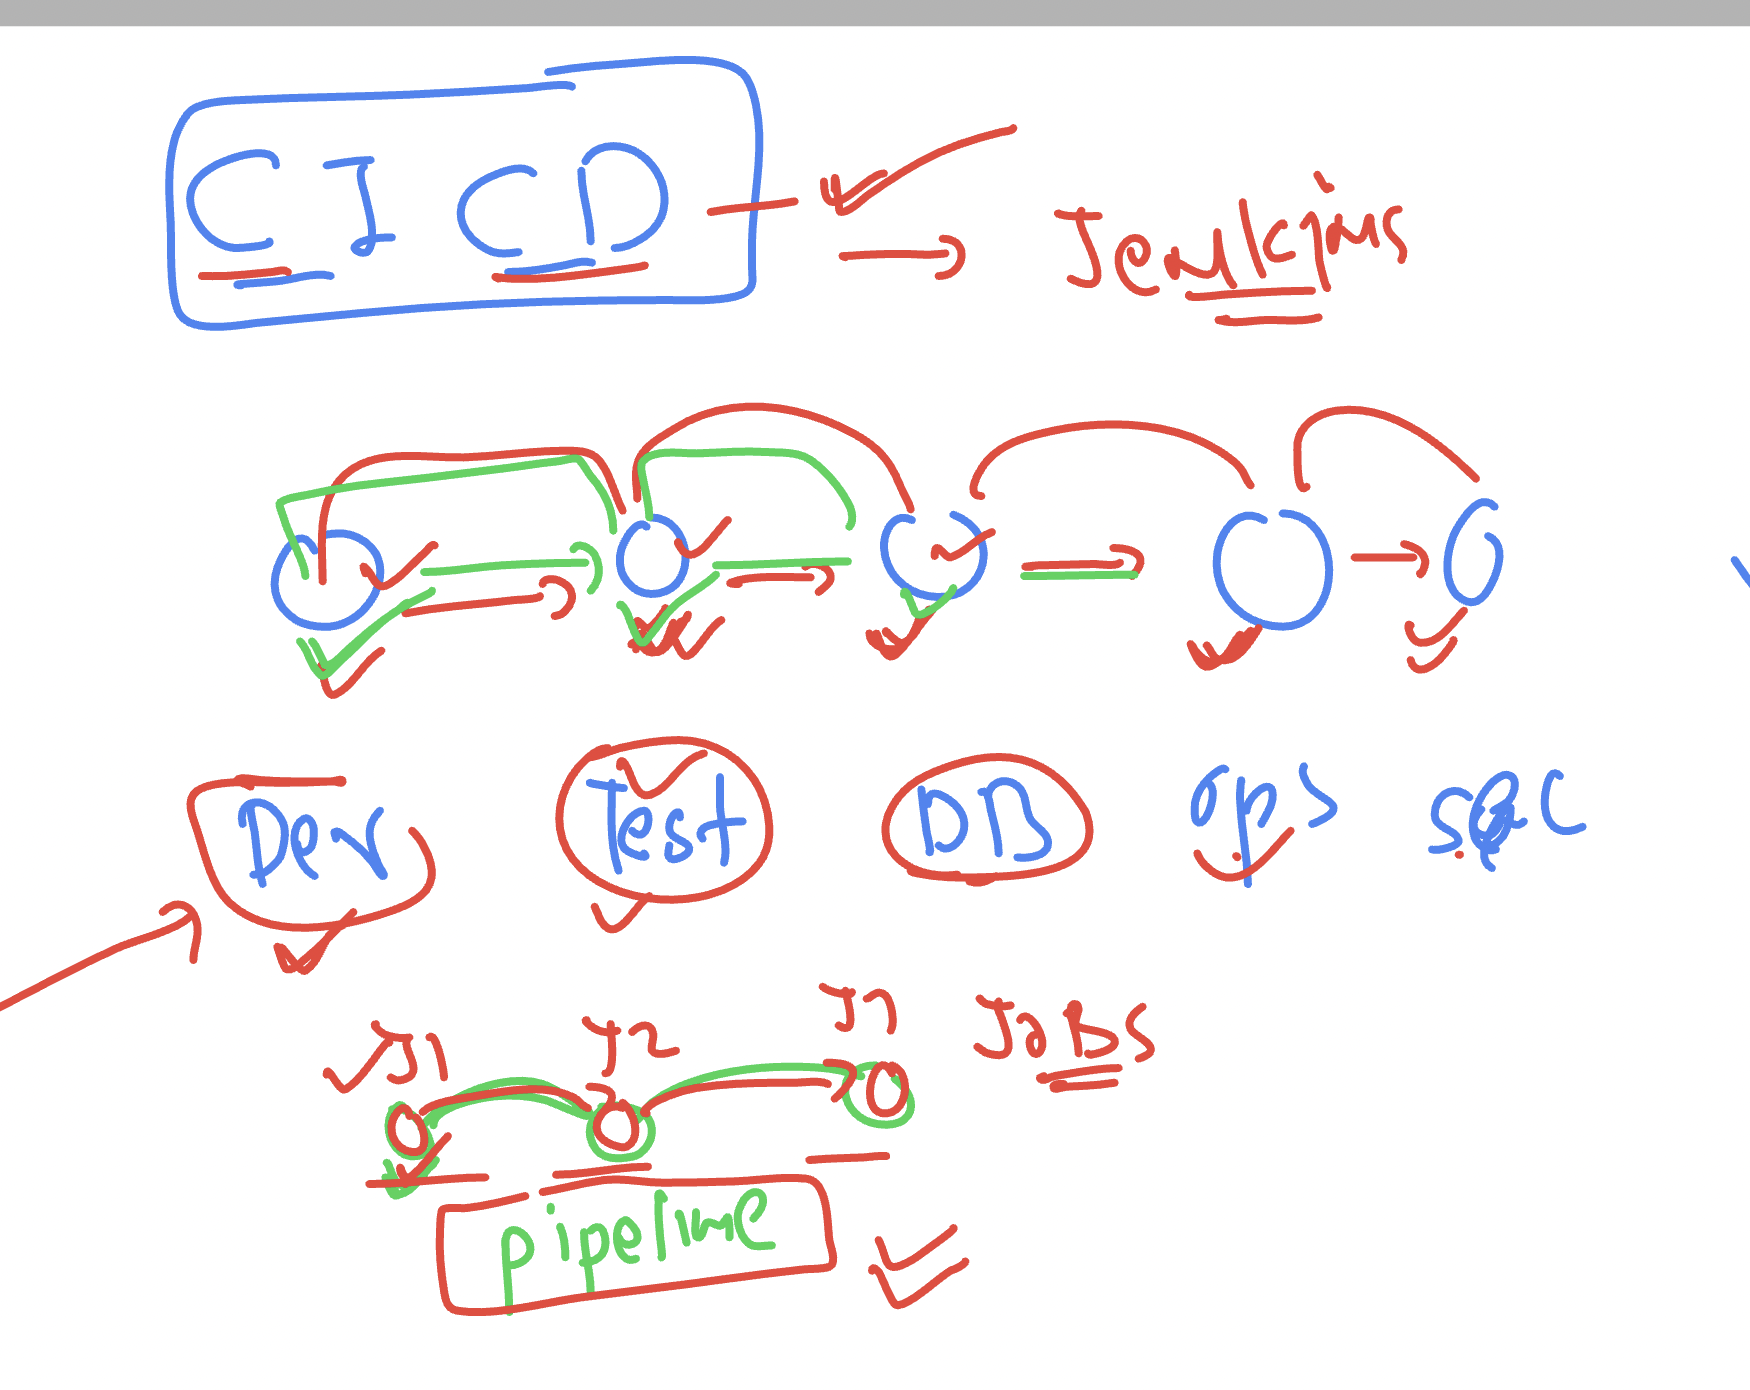 CI CD
Jenkins
Dev Test DB ops sec
J1 J2 Jn JoBs
pipeline